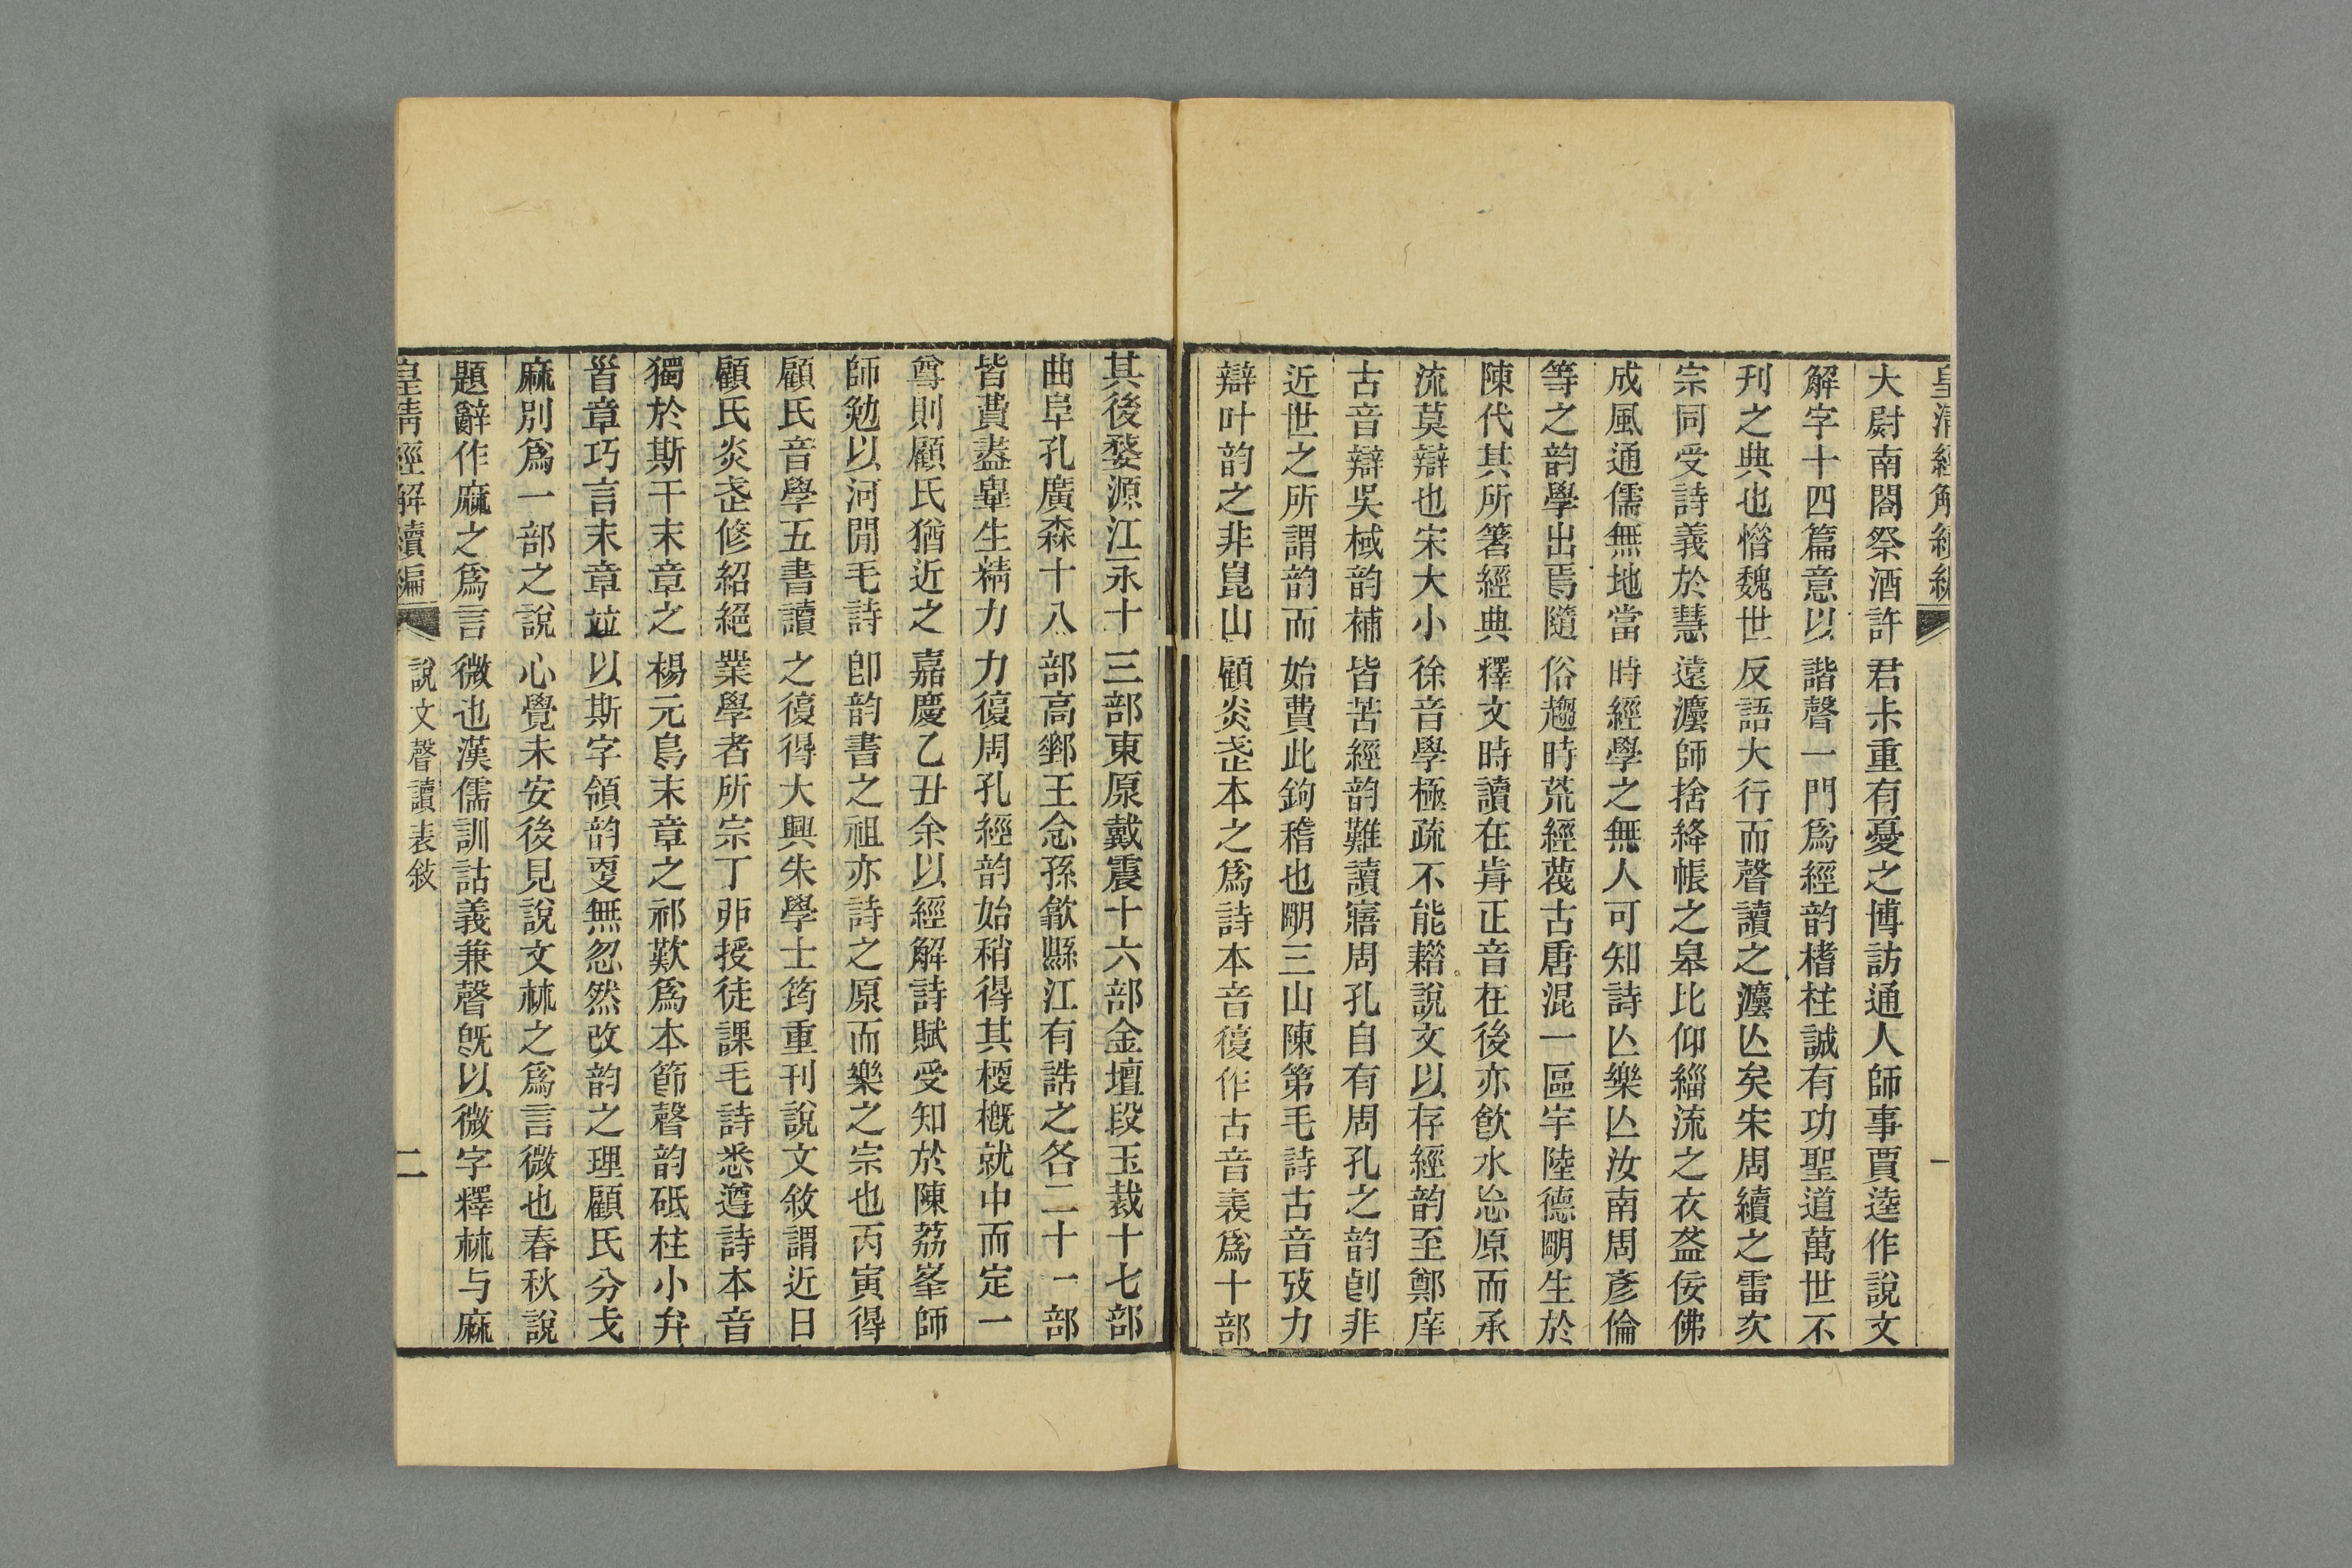 皇清經解續編
一
大尉南閣祭酒許君未重有憂之博訪通人師事賈逵作說文
解字十四篇意以諧聲一門爲經韵楮柱誠有功聖道萬世不
刊之典也㬱魏世反語大行而聲讀之灋亾矣宋周續之雷次
宗同受詩義於慧遠灋師捨絳帳之皋比仰緇流之衣盋佞佛
成風通儒無地當時經學之無人可知詩亾樂亾汝南周彥倫
等之韵學出焉隨俗趨時荒經蔑古唐混一區宇陸德朙生於
陳代其所箸經典釋文時讀在歬正音在後亦飮水忘原而承
流莫辯也宋大小徐音學極疏不能繇說文以存經韵至鄭庠
古音辯吳棫韵補皆苦經韵難讀㝛周孔自有周孔之韵剙非
近世之所謂韵而始費此鉤稽也朙三山陳第毛詩古音攷力
辯叶韵之非崑山顧炎武本之爲詩本音復作古音表爲十部
其後婺源江永十三部東原戴震十六部金壇段玉裁十七部
曲阜孔廣森十八部高郵王念孫歙縣江有誥之各二十一部
皆費盡畢生精力力復周孔經韵始稍得其梗槪就中而定一
尊則顧氏猶近之嘉慶乙丑余以經解詩賦受知於陳荔峯師
師勉以河閒毛詩卽韵書之祖亦詩之原而樂之宗也丙寅得
顧氏音學五書讀之復得大興朱學士筠重刊說文敘謂近日
顧氏炎武修紹絕業學者所宗丁卯授徒課毛詩悉遵詩本音
獨於斯干末章之楊元鳥末章之祁歎爲本節聲韵砥柱小弁
首章巧言末章竝以斯字領韵㪅無忽然改韵之理顧氏分戈
麻別爲一部之說心覺未安後見說文𣏟之爲言微也春秋說
題辭作麻之爲言微也漢儒訓詁義兼聲旣以微字釋𣏟与麻
皇清經解續編
說文聲讀表敘
二